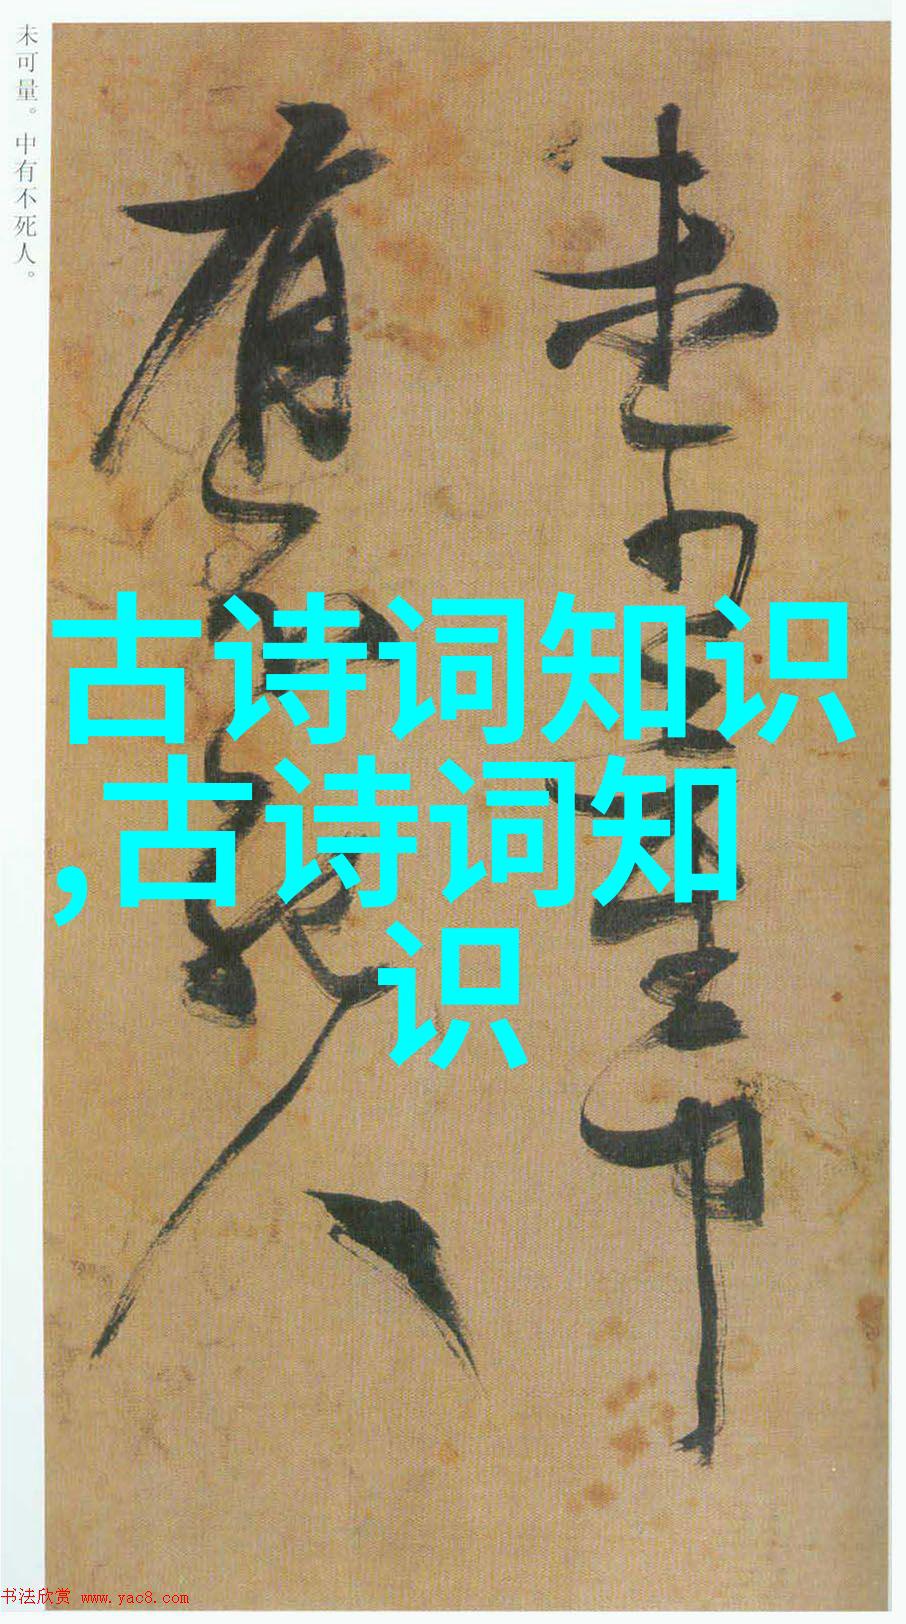 未可量。中有不死人。
未可量中
有不死人
古诗词知识
,古诗词知
识
书法欣赏 www.yac8.com